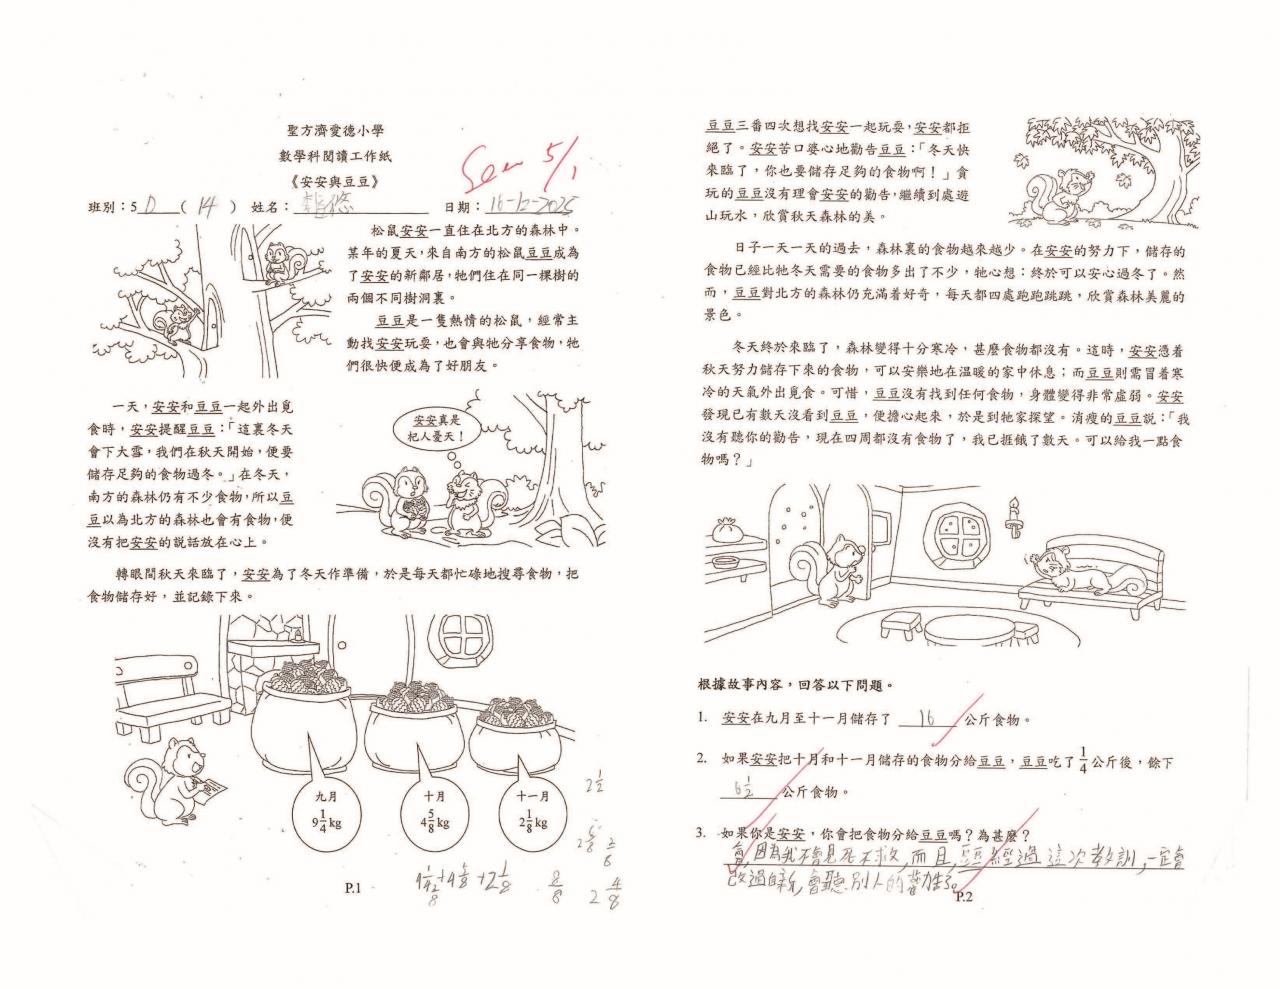 聖方濟愛德小學
數學科閱讀工作紙
《安安與豆豆》
班別：5 D （ 14 ） 姓名： 日期：16-12-2025
5/1
松鼠安安一直住在北方的森林中。
某年的夏天，來自南方的松鼠豆豆成為
了安安的新鄰居，牠們住在同一棵樹的
兩個不同樹洞裏。
豆豆是一隻熱情的松鼠，經常主
動找安安玩耍，也會與牠分享食物，牠
們很快便成為了好朋友。
一天，安安和豆豆一起外出覓
食時，安安提醒豆豆：「這裏冬天
會下大雪，我們在秋天開始，便要
儲存足夠的食物過冬。」在冬天，
南方的森林仍有不少食物，所以豆
豆以為北方的森林也會有食物，便
沒有把安安的說話放在心上。
安安真是
杞人憂天！
轉眼間秋天來臨了，安安為了冬天作準備，於是每天都忙碌地搜尋食物，把
食物儲存好，並記錄下來。
九月
9 1/4 kg
十月
4 5/8 kg
十一月
2 1/8 kg
2 1/2
2 5/8
8/8
2 4/8
P.1
豆豆三番四次想找安安一起玩耍，安安都拒
絕了。安安苦口婆心地勸告豆豆：「冬天快
來臨了，你也要儲存足夠的食物啊！」貪
玩的豆豆沒有理會安安的勸告，繼續到處遊
山玩水，欣賞秋天森林的美。
日子一天一天的過去，森林裏的食物越來越少。在安安的努力下，儲存的
食物已經比牠冬天需要的食物多出了不少，牠心想：終於可以安心過冬了。然
而，豆豆對北方的森林仍充滿着好奇，每天都四處跑跑跳跳，欣賞森林美麗的
景色。
冬天終於來臨了，森林變得十分寒冷，甚麼食物都沒有。這時，安安憑着
秋天努力儲存下來的食物，可以安樂地在溫暖的家中休息；而豆豆則需冒着寒
冷的天氣外出覓食。可惜，豆豆沒有找到任何食物，身體變得非常虛弱。安安
發現已有數天沒看到豆豆，便擔心起來，於是到牠家探望。消瘦的豆豆說：「我
沒有聽你的勸告，現在四周都沒有食物了，我已捱餓了數天。可以給我一點食
物嗎？」
根據故事內容，回答以下問題。
1. 安安在九月至十一月儲存了 16 公斤食物。
2. 如果安安把十月和十一月儲存的食物分給豆豆，豆豆吃了 1/4 公斤後，餘下
6 1/2 公斤食物。
3. 如果你是安安，你會把食物分給豆豆嗎？為甚麼？
會，因為我不會見死不救，而且，豆豆經過這次教訓，一定會
改過自新，會聽別人的勸告了。
P.2